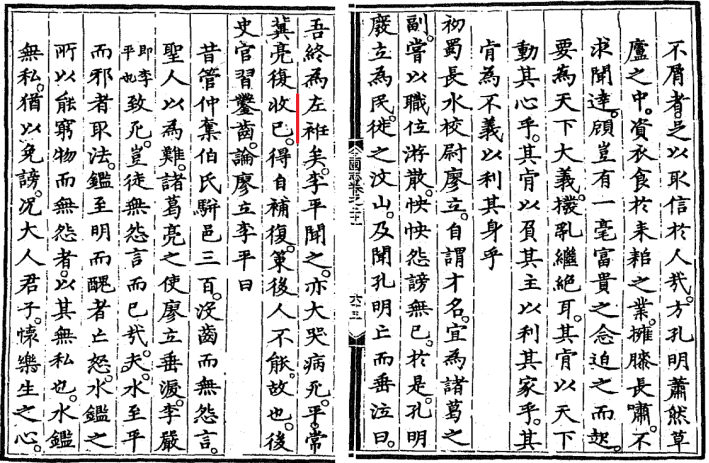 不屑者。足以取信於人哉。方孔明蕭然草
廬之中。資衣食於耒耜之業。擁膝長嘯。不
求聞達。顧豈有一毫富貴之念迫之而起。
要為天下大義撥亂繼絕耳。其肯以天下
動其心乎。其肯以負其主以利其家乎。其
肯為不義以利其身乎
初蜀長水校尉廖立。自謂才名。宜為諸葛之
副。嘗以職位游散。怏怏怨謗無已。於是。孔明
廢立為民。徙之汶山。及聞孔明亡而垂泣曰。
吾終為左袵矣。李平聞之。亦大哭病死。平。常
冀亮復收已。得自補復。策後人不能。故也。後
史官習鑿齒。論廖立李平曰
昔管仲奪伯氏駢邑三百。沒齒而無怨言。
聖人以為難。諸葛亮之使廖立垂淚。李嚴
即李平也致死。豈徒無怨言而已哉。夫。水至平
而邪者取法。鑑至明而醜者亡怒。水鑑之
所以能窮物而無怨者。以其無私也。水鑑
無私。猶以免謗。況大人君子。懷樂生之心。